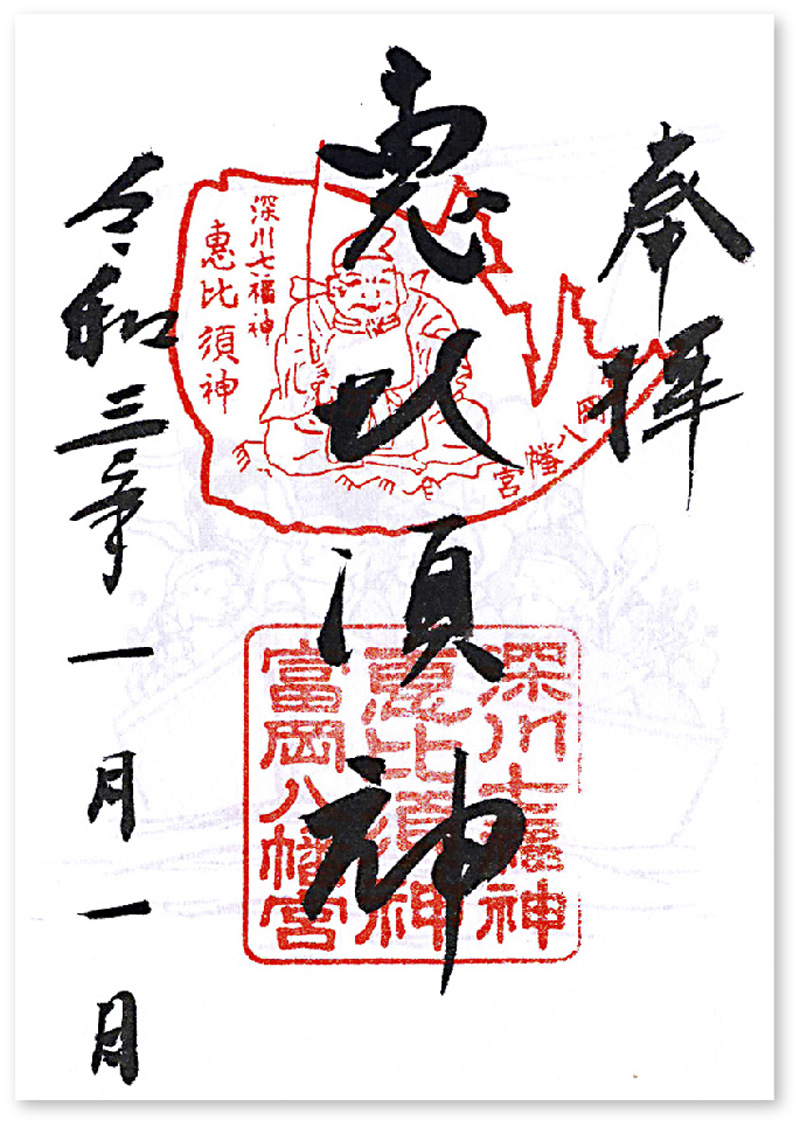 奉拝
恵比須神
令和三年一月一月
深川七福神
恵比須神
岡八幡宮
深川七福神
恵比須神
富岡八幡宮